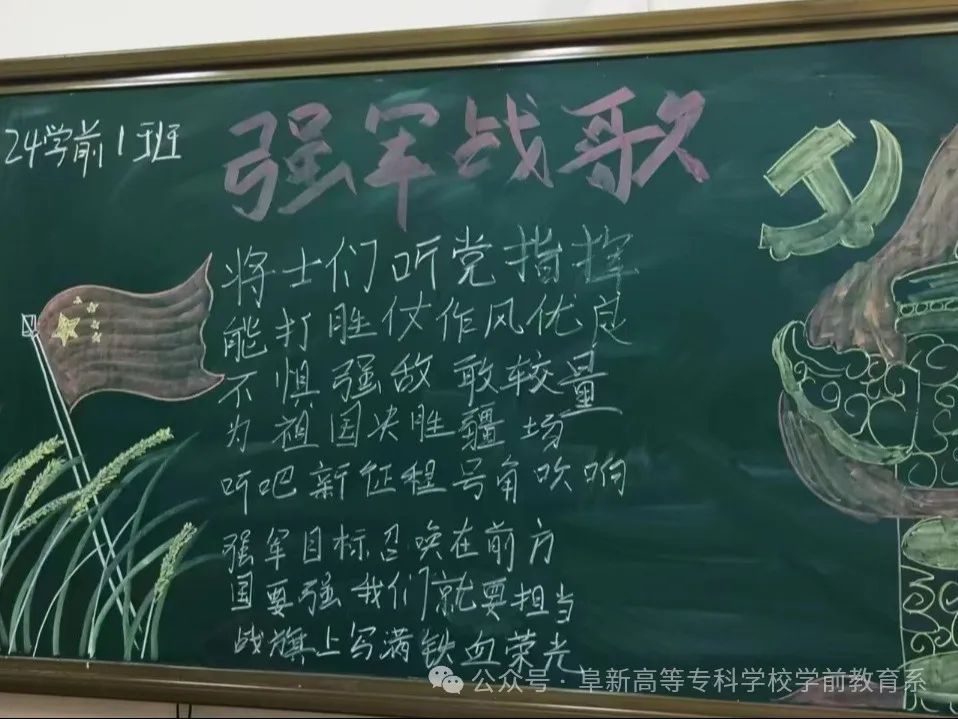 24学前1班
强军战歌
将士们听党指挥
能打胜仗作风优良
不惧强敌敢较量
为祖国决胜疆场
听吧新征程号角吹响
强军目标召唤在前方
国要强我们就要担当
战旗上写满铁血荣光
公众号·阜新高等专科学校学前教育系